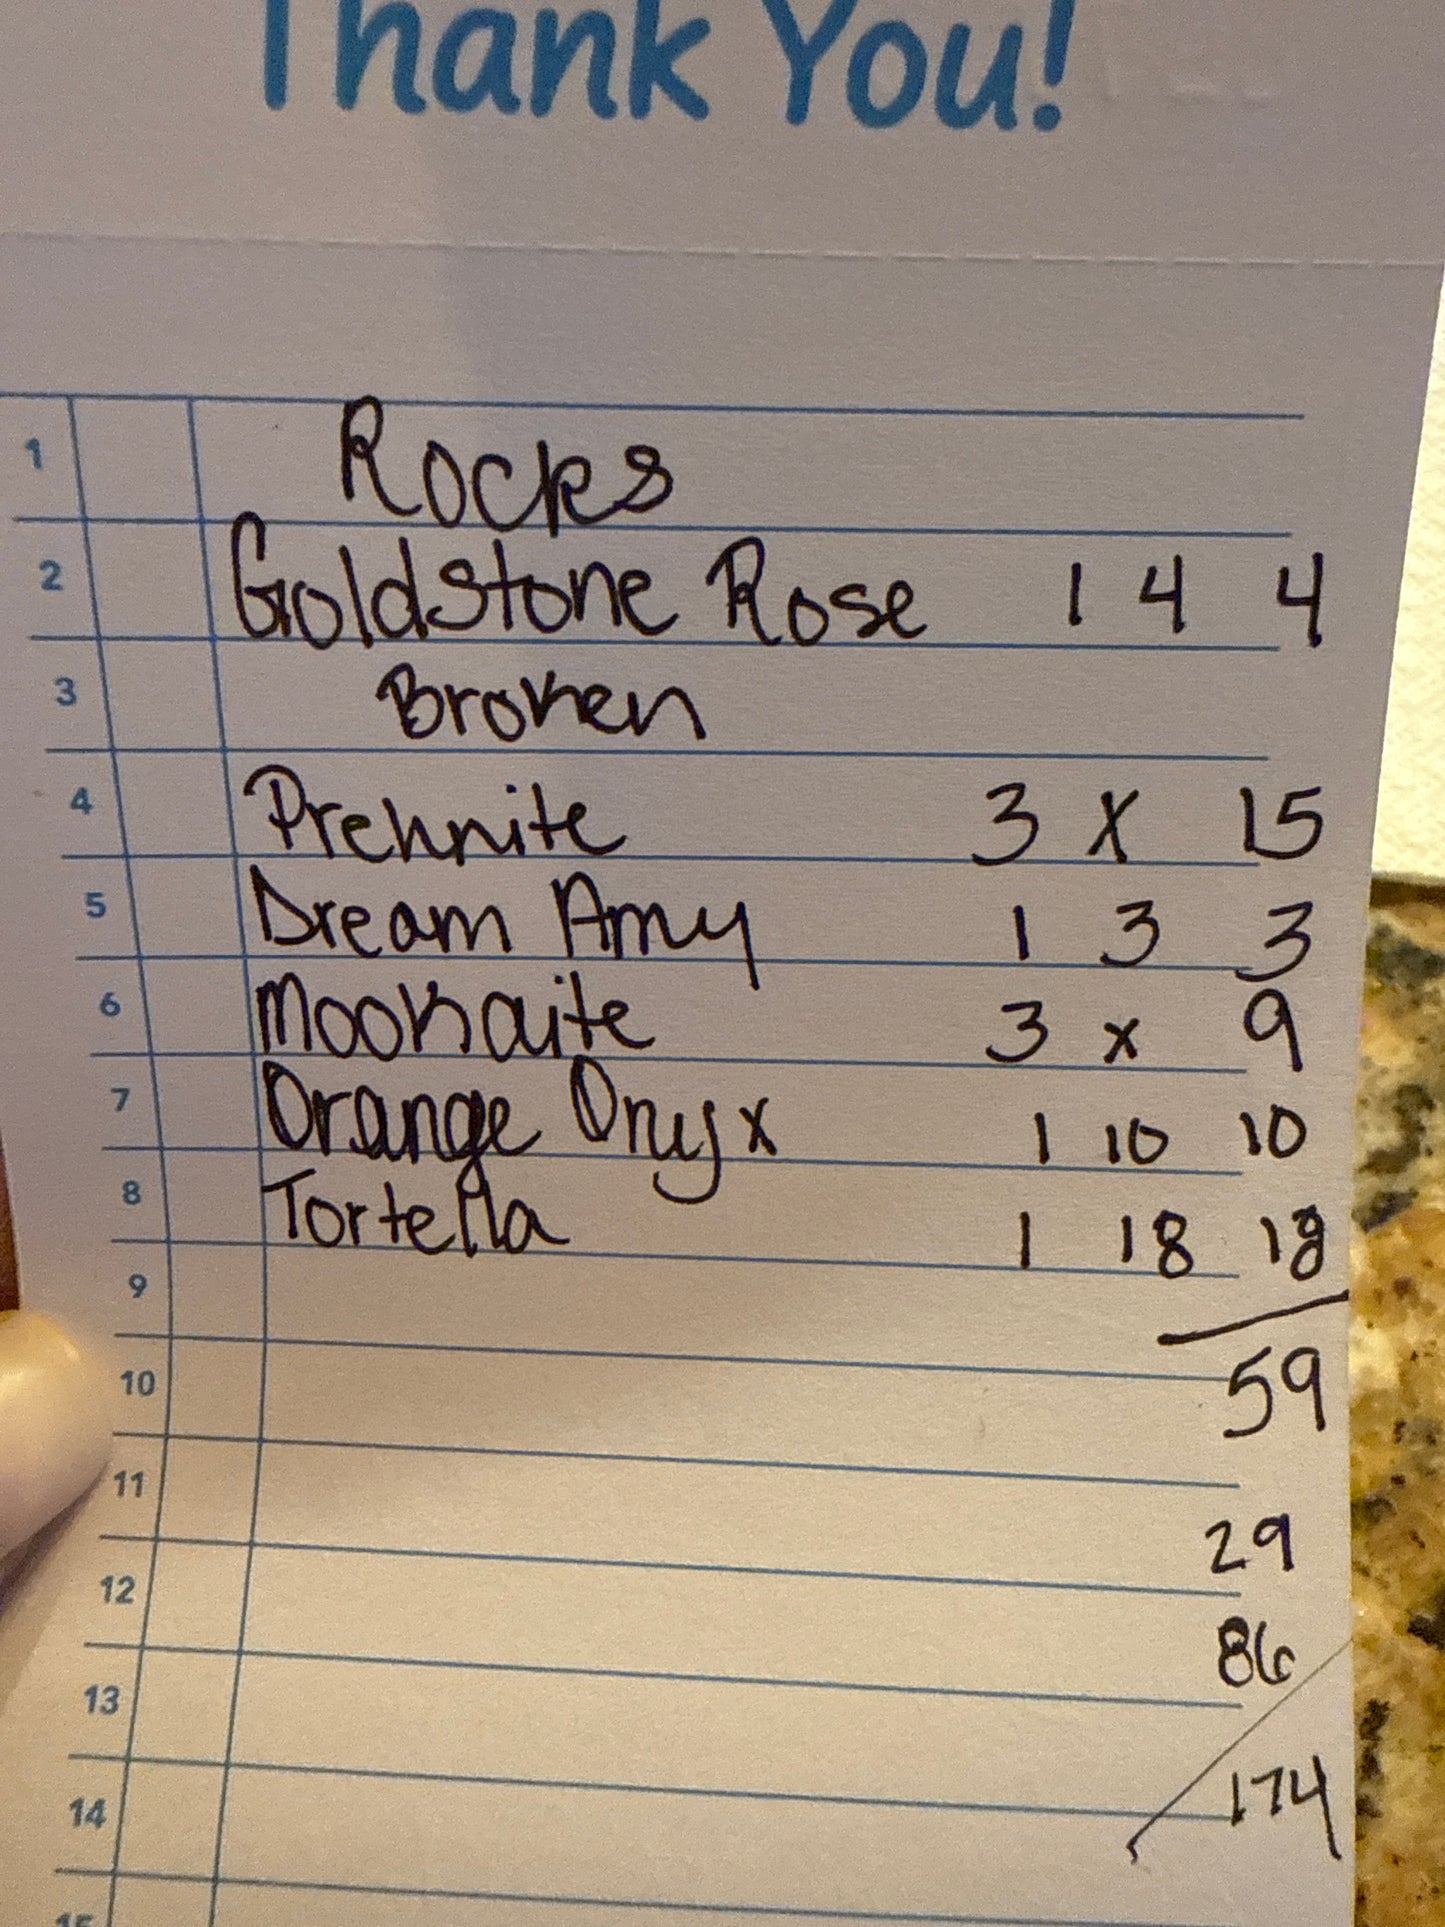 Thank You!
1 Rocks
2 Goldstone Rose 1 4 4
3 Broken
4 Prehnite 3 x 15
5 Dream Amy 1 3 3
6 Mookaite 3 x 9
7 Orange Onyx 1 10 10
8 Tortella 1 18 18
9
59
10
11
29
12
86
13
174
14
15